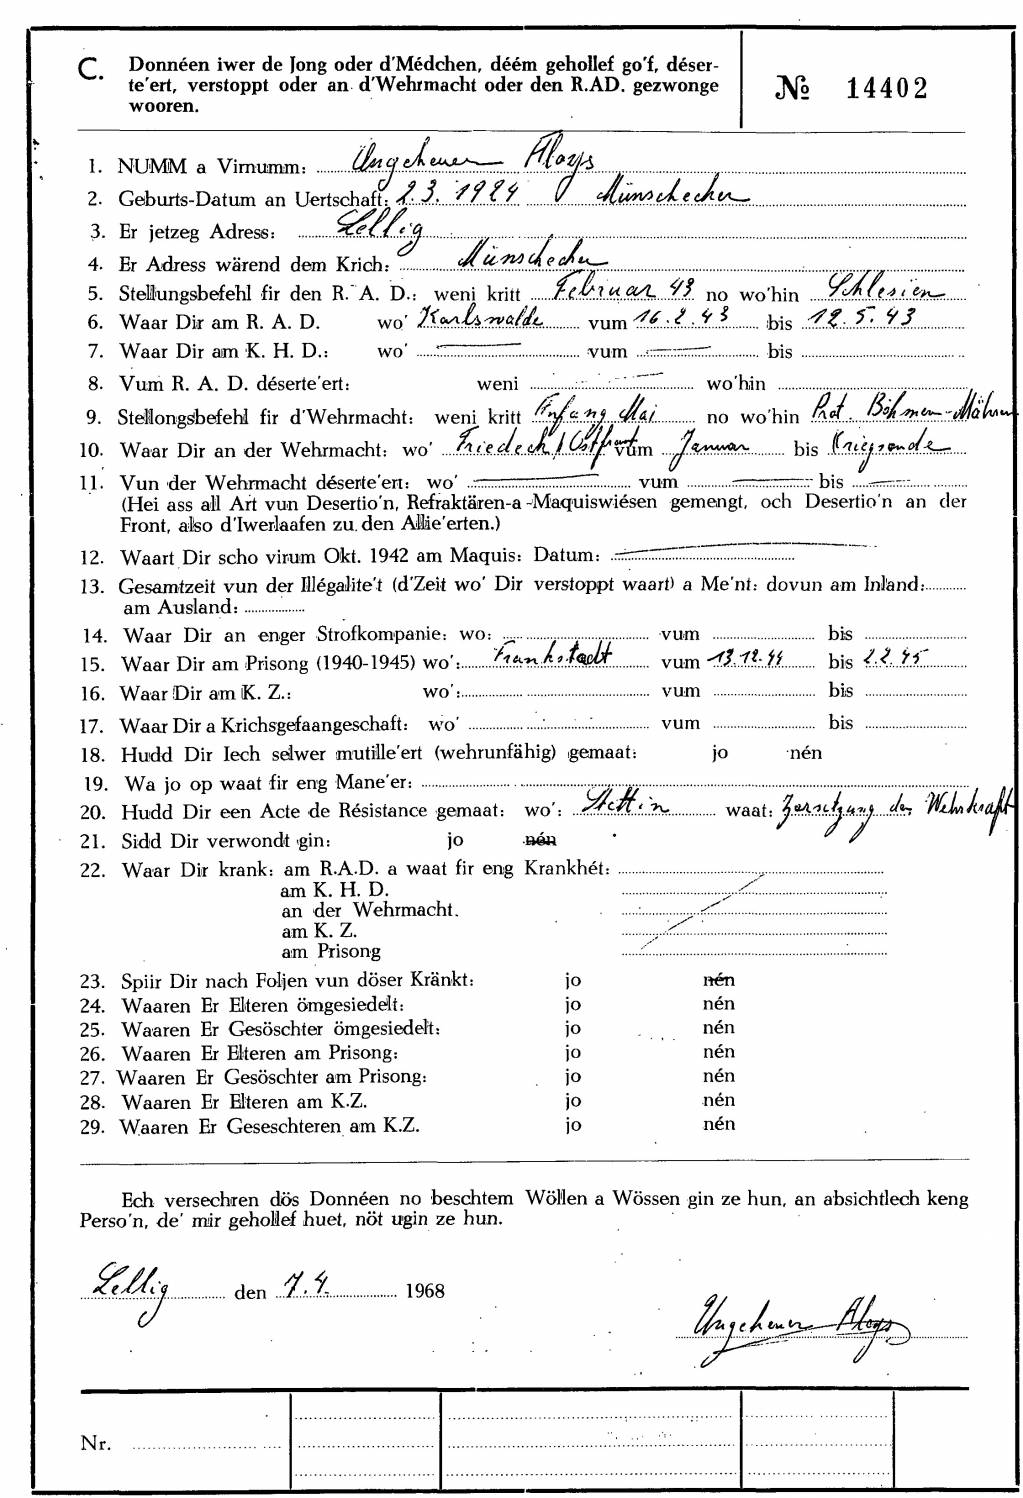 C. Donnéen iwer de Jong oder d'Médchen, déém gehollef go'f, déser-
te'ert, verstoppt oder an d'Wehrmacht oder den R.AD. gezwonge
wooren.
№ 14402
1. NUMM a Virnumm: Ungeheuer Aloys
2. Geburts-Datum an Uertschaft: 2.3.1924 Münschecker
3. Er jetzeg Adress: Lellig
4. Er Adress wärend dem Krich: Münschecker
5. Stellungsbefehl fir den R. A. D.: weni kritt Februar 43 no wo'hin Schlesien
6. Waar Dir am R. A. D. wo' Karlswalde vum 16.2.43 bis 12.5.43
7. Waar Dir am K. H. D.: wo' — vum — bis
8. Vum R. A. D. déserte'ert: weni wo'hin
9. Stellongsbefehl fir d'Wehrmacht: weni kritt Anfang Mai no wo'hin Prot. Böhmen-Mähren
10. Waar Dir an der Wehrmacht: wo' Friedeck/Ostfront vum Januar bis Kriegsende
11. Vun der Wehrmacht déserte'ert: wo' — vum — bis —
(Hei ass all Art vun Desertio'n, Refraktären-a -Maquiswiésen gemengt, och Desertio'n an der
Front, also d'Iwerlaafen zu den Allie'erten.)
12. Waart Dir scho virum Okt. 1942 am Maquis: Datum: —
13. Gesamtzeit vun der Illégalite't (d'Zeit wo' Dir verstoppt waart) a Me'nt: dovun am Inland:
am Ausland:
14. Waar Dir an enger Strofkompanie: wo: vum bis
15. Waar Dir am Prisong (1940-1945) wo': Frankstadt vum 13.12.44 bis 2.2.45
16. Waar Dir am K. Z.: wo': vum bis
17. Waar Dir a Krichsgefaangeschaft: wo' vum bis
18. Hudd Dir Iech selwer mutille'ert (wehrunfähig) gemaat: jo nén
19. Wa jo op waat fir eng Mane'er:
20. Hudd Dir een Acte de Résistance gemaat: wo': Stettin waat: Zersetzung der Wehrkraft
21. Sidd Dir verwondt gin: jo nén
22. Waar Dir krank: am R.A.D. a waat fir eng Krankhét:
am K. H. D.
an der Wehrmacht.
am K. Z.
am Prisong
23. Spiir Dir nach Foljen vun döser Kränkt: jo nén
24. Waaren Er Elteren ömgesiedelt: jo nén
25. Waaren Er Gesöschter ömgesiedelt: jo nén
26. Waaren Er Elteren am Prisong: jo nén
27. Waaren Er Gesöschter am Prisong: jo nén
28. Waaren Er Elteren am K.Z. jo nén
29. Waaren Er Geseschteren am K.Z. jo nén
Ech versechren dös Donnéen no beschtem Wöllen a Wössen gin ze hun, an absichtlech keng
Perso'n, de' mir gehollef huet, nöt ugin ze hun.
Lellig den 7.4. 1968
Ungeheuer Aloys
Nr.